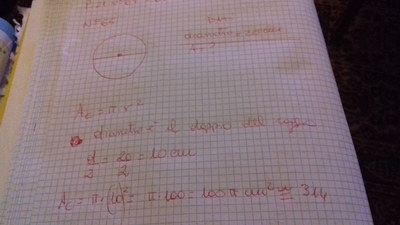 diametro = 20 cm
A_c = π r²
diametro è il doppio del raggio
d/2 = 20/2 = 10 cm
A_c = π · (10)² = π · 100 = 100 π cm² ≅ 314